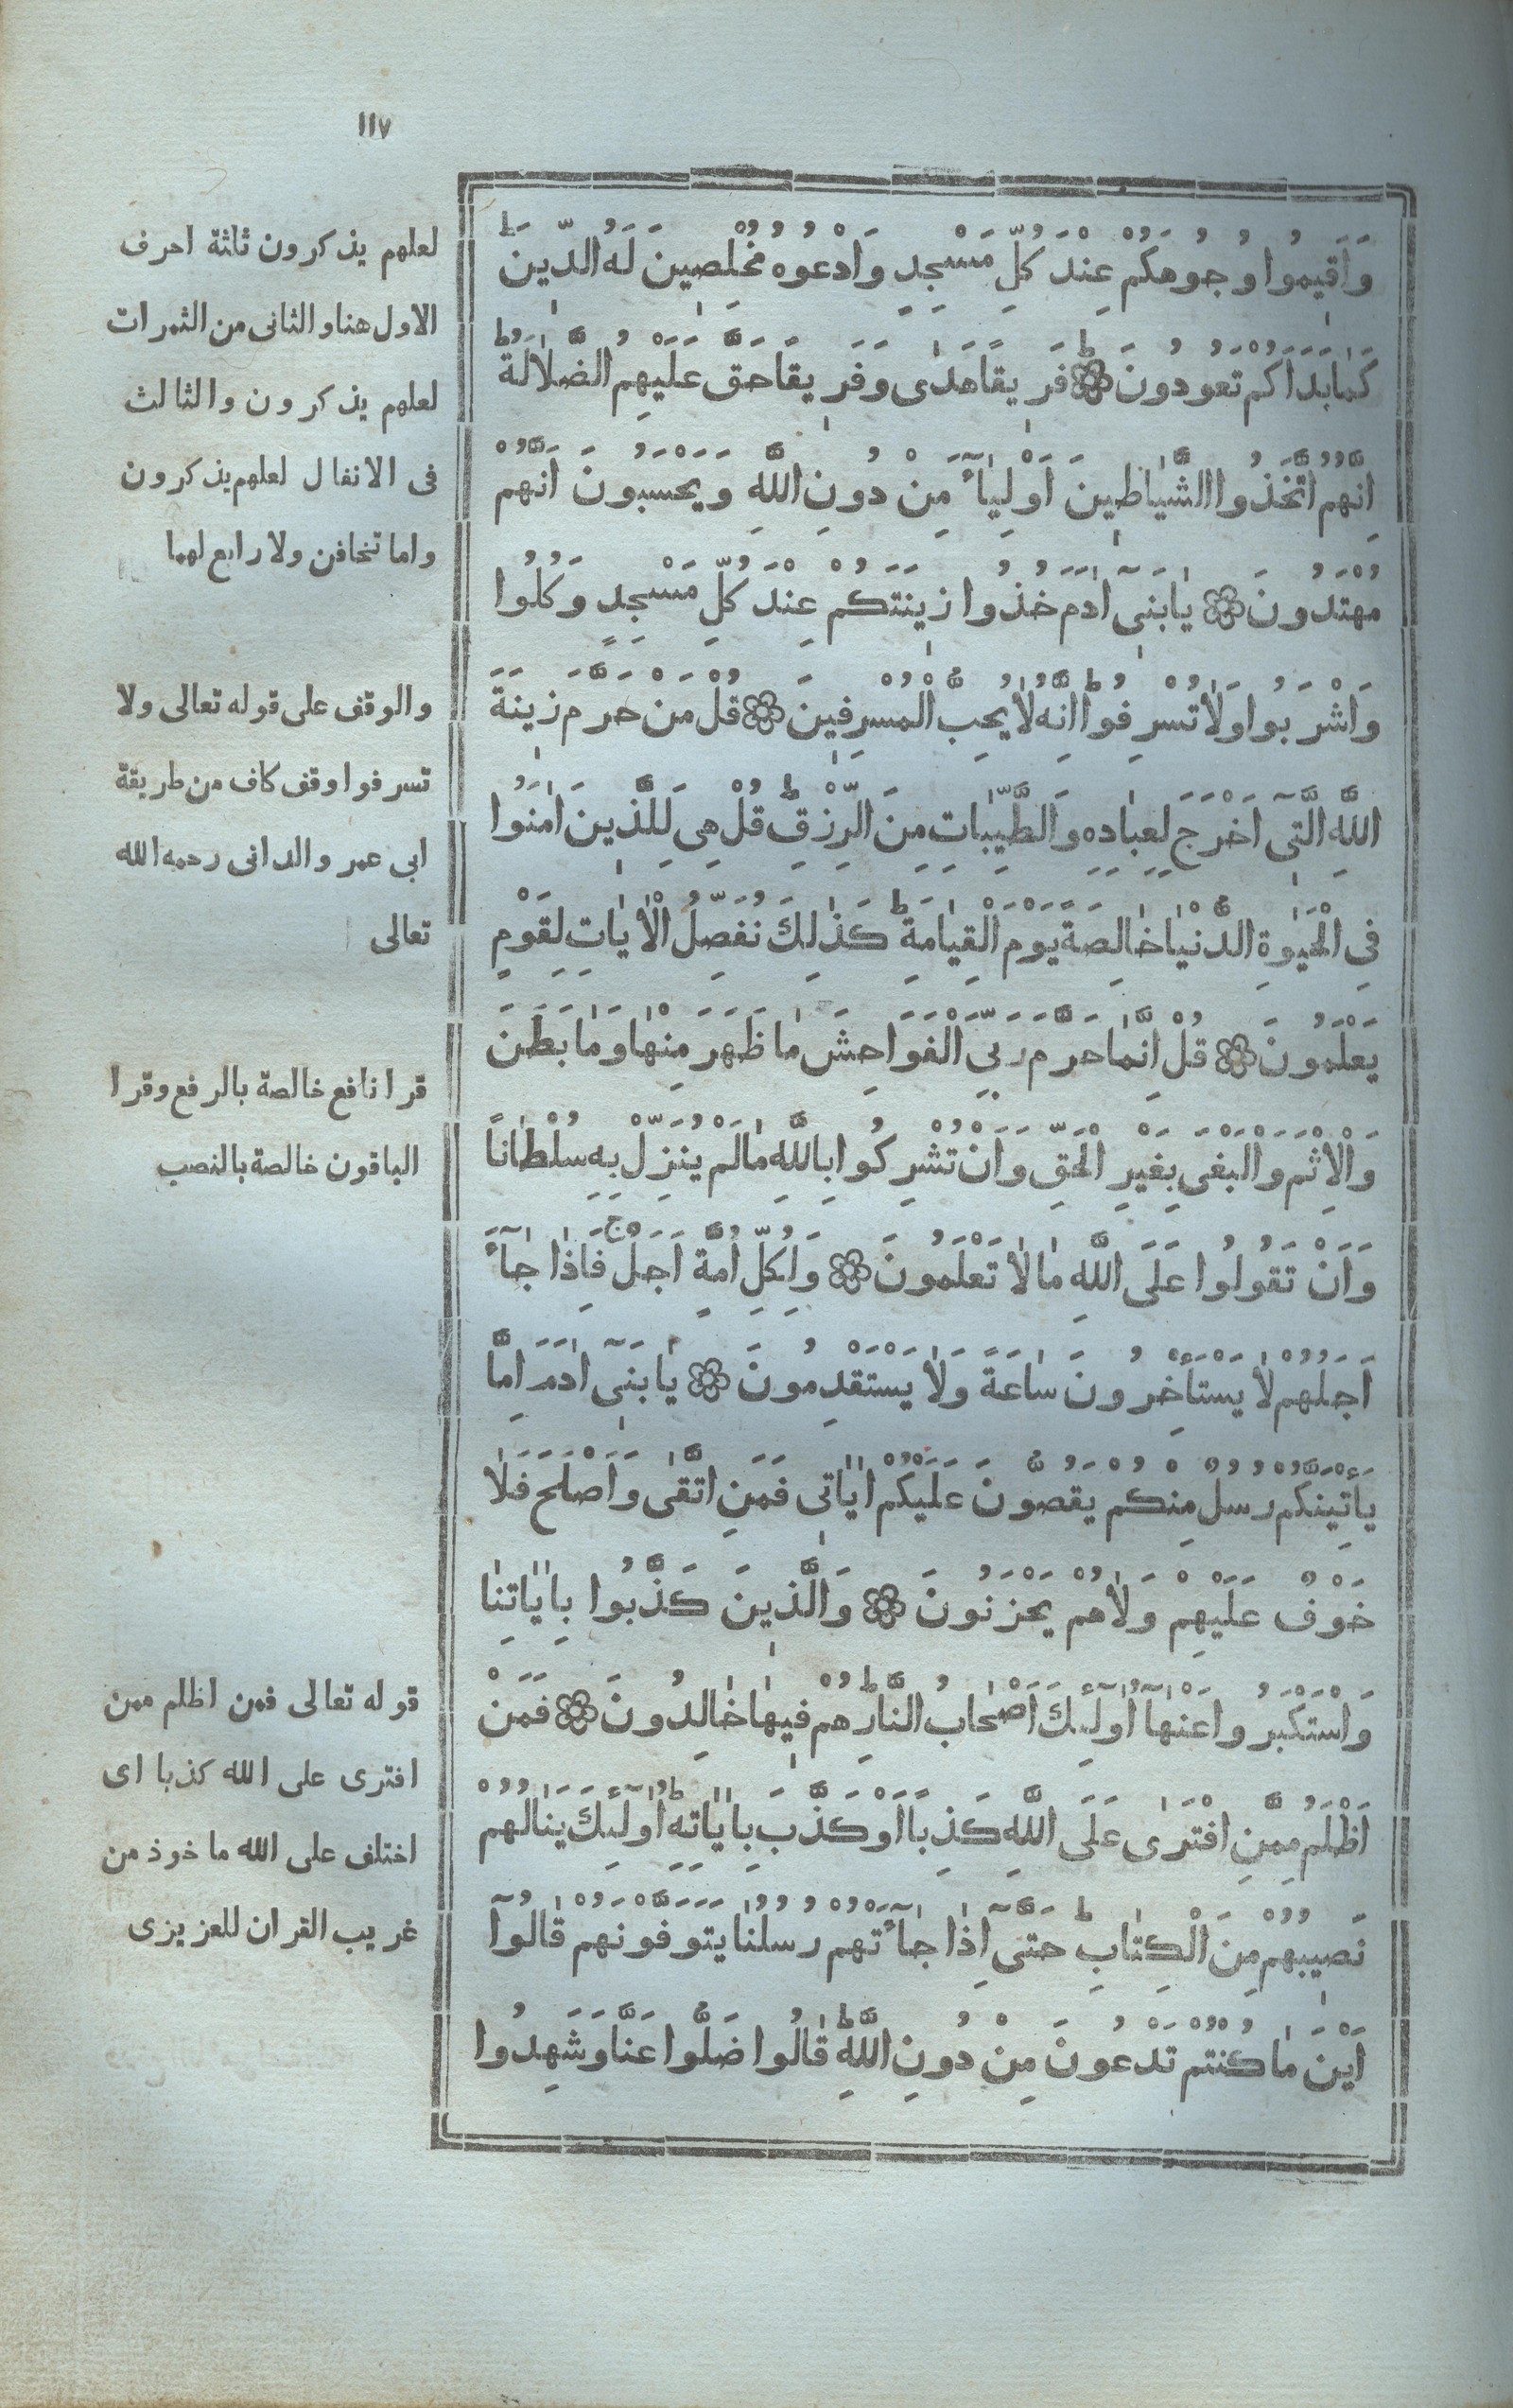 ١١٧
وَاَقِيمُوا وُجُوهَكُمْ عِنْدَ كُلِّ مَسْجِدٍ وَادْعُوهُ مُخْلِصِينَ لَهُ الدِّينَ ط
كَمَا بَدَاَكُمْ تَعُودُونَ ۝ فَرِيقًا هَدٰى وَفَرِيقًا حَقَّ عَلَيْهِمُ الضَّلَالَةُ ط
اِنَّهُمُ اتَّخَذُوا الشَّيَاطِينَ اَوْلِيَآءَ مِنْ دُونِ اللَّهِ وَيَحْسَبُونَ اَنَّهُمْ
مُهْتَدُونَ ۝ يَا بَنِىٓ اٰدَمَ خُذُوا زِينَتَكُمْ عِنْدَ كُلِّ مَسْجِدٍ وَكُلُوا
وَاشْرَبُوا وَلَا تُسْرِفُوا ط اِنَّهُ لَا يُحِبُّ الْمُسْرِفِينَ ۝ قُلْ مَنْ حَرَّمَ زِينَةَ
اللَّهِ الَّتِىٓ اَخْرَجَ لِعِبَادِهِ وَالطَّيِّبَاتِ مِنَ الرِّزْقِ ط قُلْ هِىَ لِلَّذِينَ اٰمَنُوا
فِى الْحَيٰوةِ الدُّنْيَا خَالِصَةً يَوْمَ الْقِيَامَةِ ط كَذٰلِكَ نُفَصِّلُ الْاٰيَاتِ لِقَوْمٍ
يَعْلَمُونَ ۝ قُلْ اِنَّمَا حَرَّمَ رَبِّىَ الْفَوَاحِشَ مَا ظَهَرَ مِنْهَا وَمَا بَطَنَ
وَالْاِثْمَ وَالْبَغْىَ بِغَيْرِ الْحَقِّ وَاَنْ تُشْرِكُوا بِاللَّهِ مَا لَمْ يُنَزِّلْ بِهِ سُلْطَانًا
وَاَنْ تَقُولُوا عَلَى اللَّهِ مَا لَا تَعْلَمُونَ ۝ وَلِكُلِّ اُمَّةٍ اَجَلٌ ج فَاِذَا جَآءَ
اَجَلُهُمْ لَا يَسْتَأْخِرُونَ سَاعَةً وَلَا يَسْتَقْدِمُونَ ۝ يَا بَنِىٓ اٰدَمَ اِمَّا
يَأْتِيَنَّكُمْ رُسُلٌ مِنْكُمْ يَقُصُّونَ عَلَيْكُمْ اٰيَاتِى فَمَنِ اتَّقٰى وَاَصْلَحَ فَلَا
خَوْفٌ عَلَيْهِمْ وَلَا هُمْ يَحْزَنُونَ ۝ وَالَّذِينَ كَذَّبُوا بِاٰيَاتِنَا
وَاسْتَكْبَرُوا عَنْهَآ اُولٰٓئِكَ اَصْحَابُ النَّارِ ط هُمْ فِيهَا خَالِدُونَ ۝ فَمَنْ
اَظْلَمُ مِمَّنِ افْتَرٰى عَلَى اللَّهِ كَذِبًا اَوْ كَذَّبَ بِاٰيَاتِهِ ط اُولٰٓئِكَ يَنَالُهُمْ
نَصِيبُهُمْ مِنَ الْكِتَابِ ط حَتّٰىٓ اِذَا جَآءَتْهُمْ رُسُلُنَا يَتَوَفَّوْنَهُمْ قَالُوٓا
اَيْنَ مَا كُنْتُمْ تَدْعُونَ مِنْ دُونِ اللَّهِ ط قَالُوا ضَلُّوا عَنَّا وَشَهِدُوا
لعلهم يذكرون ثلثة احرف
الاول هنا والثانى من الثمرات
لعلهم يذكرون والثالث
فى الانفال لعلهم يذكرون
واما تخافن ولا رابع لهما
والوقف على قوله تعالى ولا
تسرفوا وقف كاف من طريقة
ابى عمر والدانى رحمه الله
تعالى
قرا نافع خالصة بالرفع وقرا
الباقون خالصة بالنصب
قوله تعالى فمن اظلم ممن
افترى على الله كذبا اى
اختلف على الله ماخوذ من
غريب القران للعزيزى